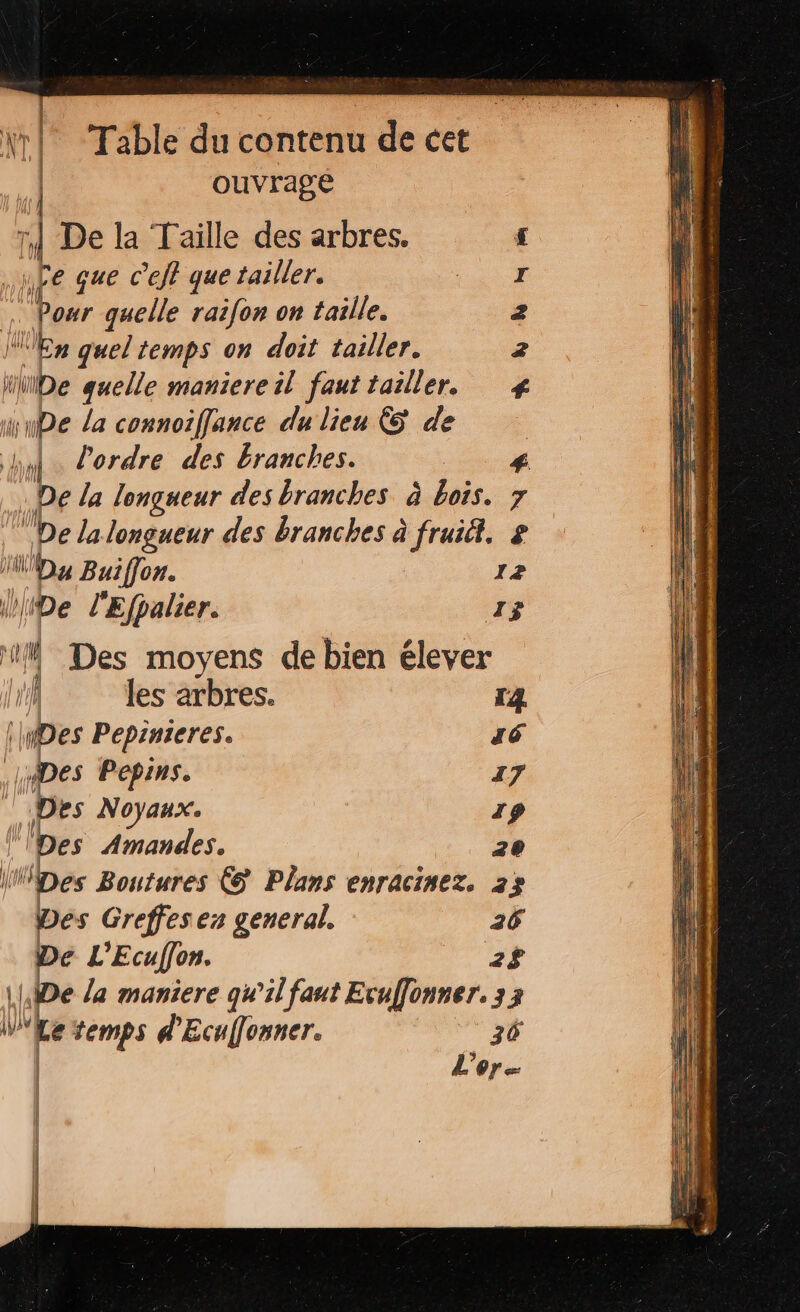 Table du contenu de cet
ouvrage
De la Taille des arbres. 1
Ce que c'eſt que tailler. 1
Pour quelle raiſon on taille. 2
En quel temps on doit tailler. 2
De quelle maniere il faut tailler. 4
De la connoiſſance du lieu & de
l'ordre des branches. 4
De la longueur des branches à bois. 7
De la longueur des branches à fruict. 8
Du Buiſſon. 12
De l'Eſpalier. 13
Des moyens de bien élever
les arbres. 14
Des Pepinieres. 16
Des Pepins. 17
Des Noyaux. 19
Des Amandes. 20
Des Boutures & Plans enracinez. 23
Des Greffes en general. 26
De L'Ecuſſon. 28
De la maniere qu'il faut Ecuſſonner. 33
Le temps d'Ecuſſonner. 36
L'or-